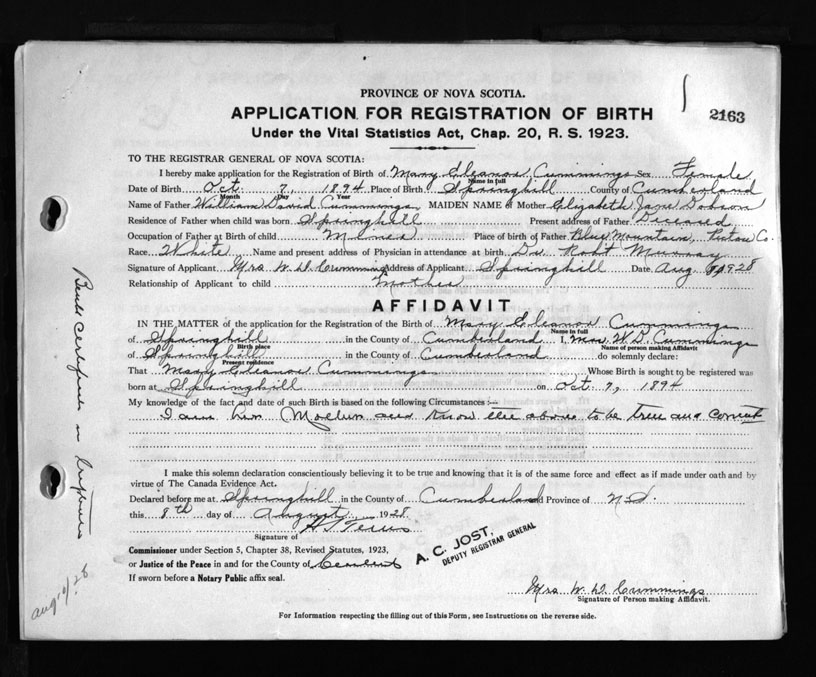 PROVINCE OF NOVA SCOTIA.
2163
APPLICATION FOR REGISTRATION OF BIRTH
Under the Vital Statistics Act, Chap. 20, R. S. 1923.
TO THE REGISTRAR GENERAL OF NOVA SCOTIA:
I hereby make application for the Registration of Birth of Mary Eleanor Cummings Sex Female
Name in full
Date of Birth Oct. 7, 1894 Place of Birth Springhill County of Cumberland
Month Day Year
Name of Father William David Cummings MAIDEN NAME of Mother Elizabeth Jane Dobson
Residence of Father when child was born Springhill Present address of Father Deceased
Occupation of Father at Birth of child Miner Place of birth of Father Blue Mountain, Pictou Co.
Race White Name and present address of Physician in attendance at birth Dr Robt Murray
Signature of Applicant Mrs W. D. Cummings Address of Applicant Springhill Date Aug 1928
Relationship of Applicant to child Mother
AFFIDAVIT
IN THE MATTER of the application for the Registration of the Birth of Mary Eleanor Cummings
Name in full
of Springhill in the County of Cumberland I, Mrs. W. D. Cummings
Birth place Name of person making Affidavit
of Springhill in the County of Cumberland do solemnly declare:
Present residence
That Mary Eleanor Cummings Whose Birth is sought to be registered was
born at Springhill on Oct. 7, 1894
My knowledge of the fact and date of such Birth is based on the following Circumstances:—
I am her Mother and know the above to be true and correct
I make this solemn declaration conscientiously believing it to be true and knowing that it is of the same force and effect as if made under oath and by
virtue of The Canada Evidence Act.
Declared before me at Springhill in the County of Cumberland Province of N.S.
this 8th day of August 1928
Signature of
Commissioner under Section 5, Chapter 38, Revised Statutes, 1923,
or Justice of the Peace in and for the County of
If sworn before a Notary Public affix seal.
A. C. JOST,
DEPUTY REGISTRAR GENERAL
Mrs W. D. Cummings
Signature of Person making Affidavit.
For Information respecting the filling out of this Form, see Instructions on the reverse side.
Birth Certificate in
Aug 10/28